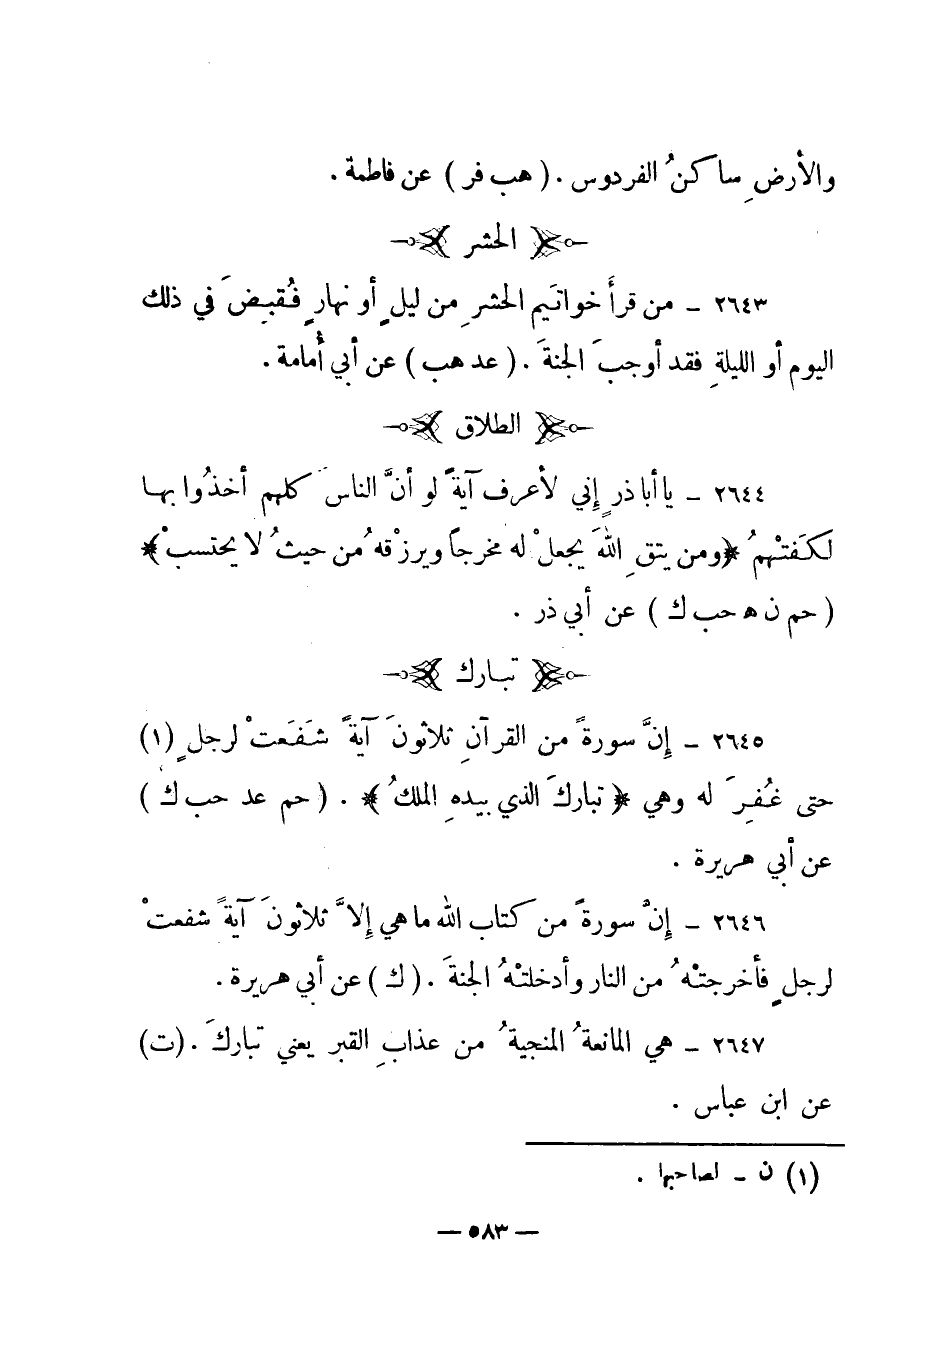 والأرضِ ساكنُ الفردوس . ( هب فر ) عن فاطمة .
الحشر
٢٦٤٣ – من قرأَ خواتَيم الحشرِ من ليلٍ أو نهارٍ فُقبِضَ في ذلك
اليوم أو الليلةِ فقد أوجبَ الجنةَ . ( عد هب ) عن أبي أُمامة .
الطلاق
٢٦٤٤ – يا أبا ذرٍ إني لأعرف آيةً لو أنَّ الناسَ كلهم أخذُوا بها
لكَفتْهمُ ﴿ومن يتقِ اللهَ يجعلْ له مخرجاً ويرزْقهُ من حيثُ لا يحتسبْ﴾
( حم ن ه حب ك ) عن أبي ذر .
تبارك
٢٦٤٥ – إنَّ سورةً من القرآنِ ثلاثونَ آيةً شفَعَتْ لرجلٍ (١)
حتى غُفِرَ له وهي ﴿ تباركَ الذي بيدهِ الملكُ ﴾ . ( حم عد حب ك )
عن أبي هريرة .
٢٦٤٦ – إنَّ سورةً من كتاب الله ما هي إلاَّ ثلاثونَ آيةً شفعتْ
لرجلٍ فأخرجتْهُ من النار وأدخلتْهُ الجنةَ . ( ك ) عن أبي هريرة .
٢٦٤٧ – هي المانعةُ المنجيةُ من عذابِ القبر يعني تباركَ . (ت)
عن ابن عباس .
(١) ن – لصاحبها .
— ٥٨٣ —